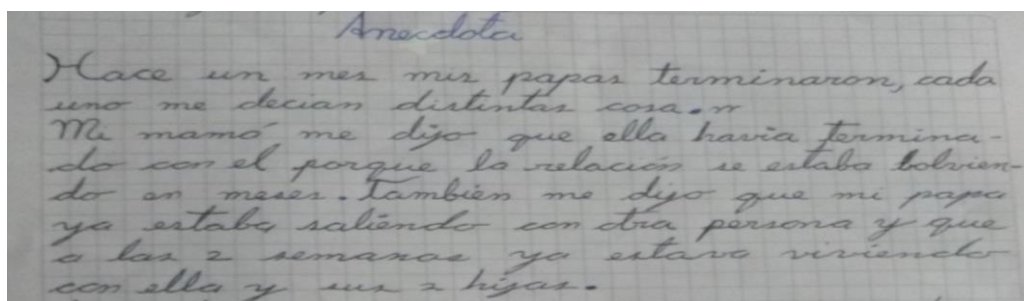 Anecdota
Hace un mes mis papas terminaron, cada
uno me decian distintas cosa.
Mi mamá me dijo que ella havia termina-
do con el porque la relación se estaba bolvien-
do en meses. También me dijo que mi papa
ya estaba saliendo con otra persona y que
a las 2 semanas ya estava viviendo
con ella y sus 2 hijas.